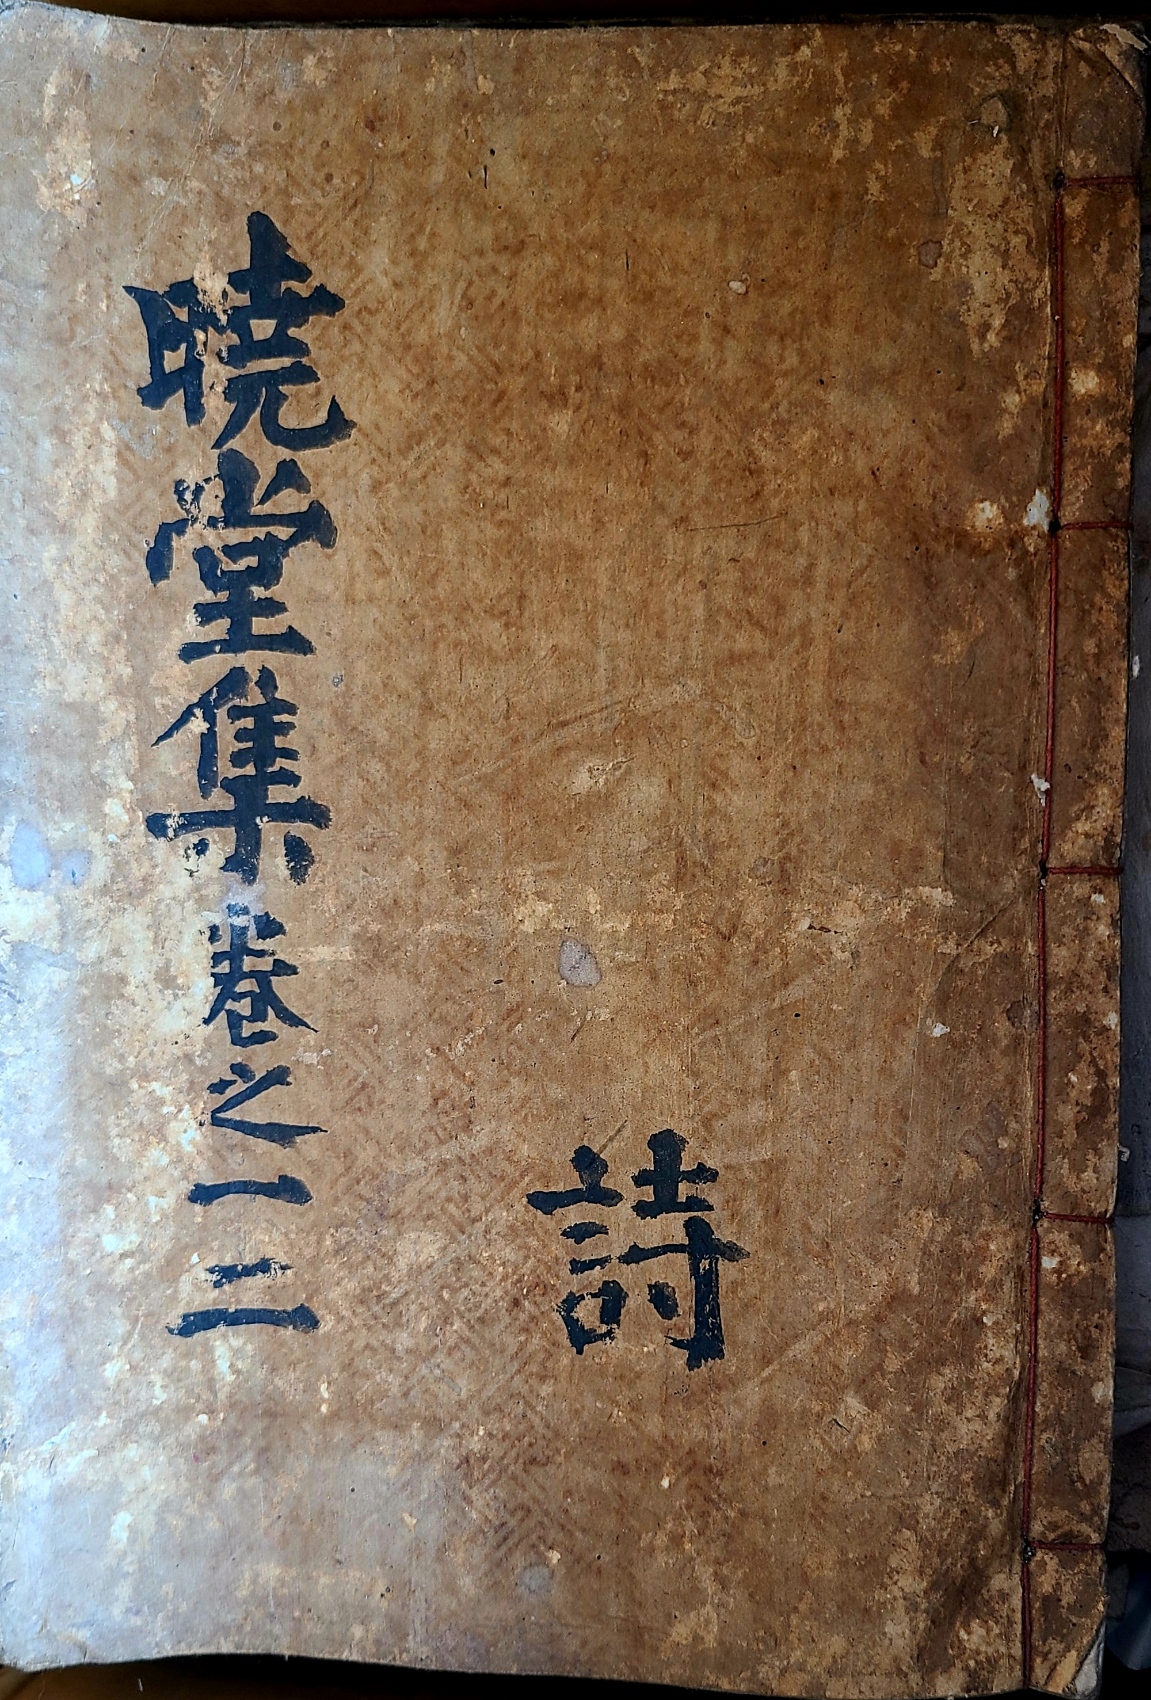 暁堂集卷之一二
詩